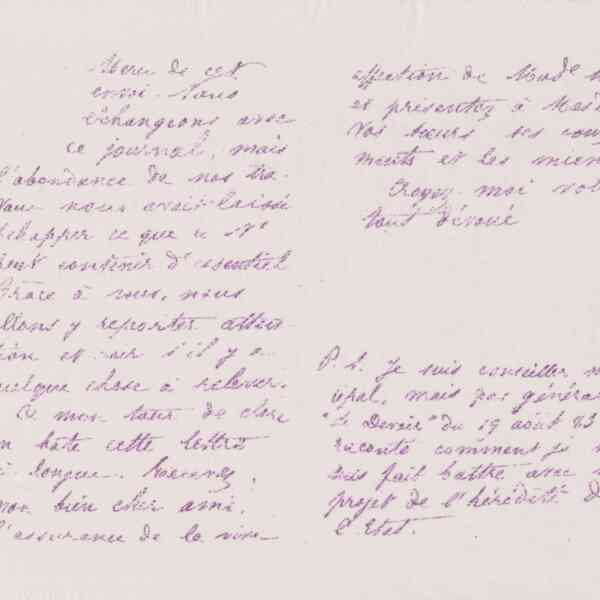 Merci de cet
envoi. Nous
échangeons avec
ce journal, mais
l'abondance de nos tra-
vaux nous avait laissé
échapper ce que ce Nº
peut contenir d'essentiel
Grâce à vous, nous
allons y reporter atten-
tion et voir s'il y a
quelque chose à relever.
À mon tour de clore
en hâte cette lettre
si longue. Recevez,
mon bien cher ami,
l'assurance de la vive
affection de Made M
et présentez à Mes
vos sœurs ses com
ments et les miens
Croyez-moi vot
tout dévoué
P. S. Je suis conseiller m
cipal, mais pas généra
"Le Devoir" du 19 août 83
raconte comment je m
suis fait battre avec
projet de l'hérédité de
l'Etat.